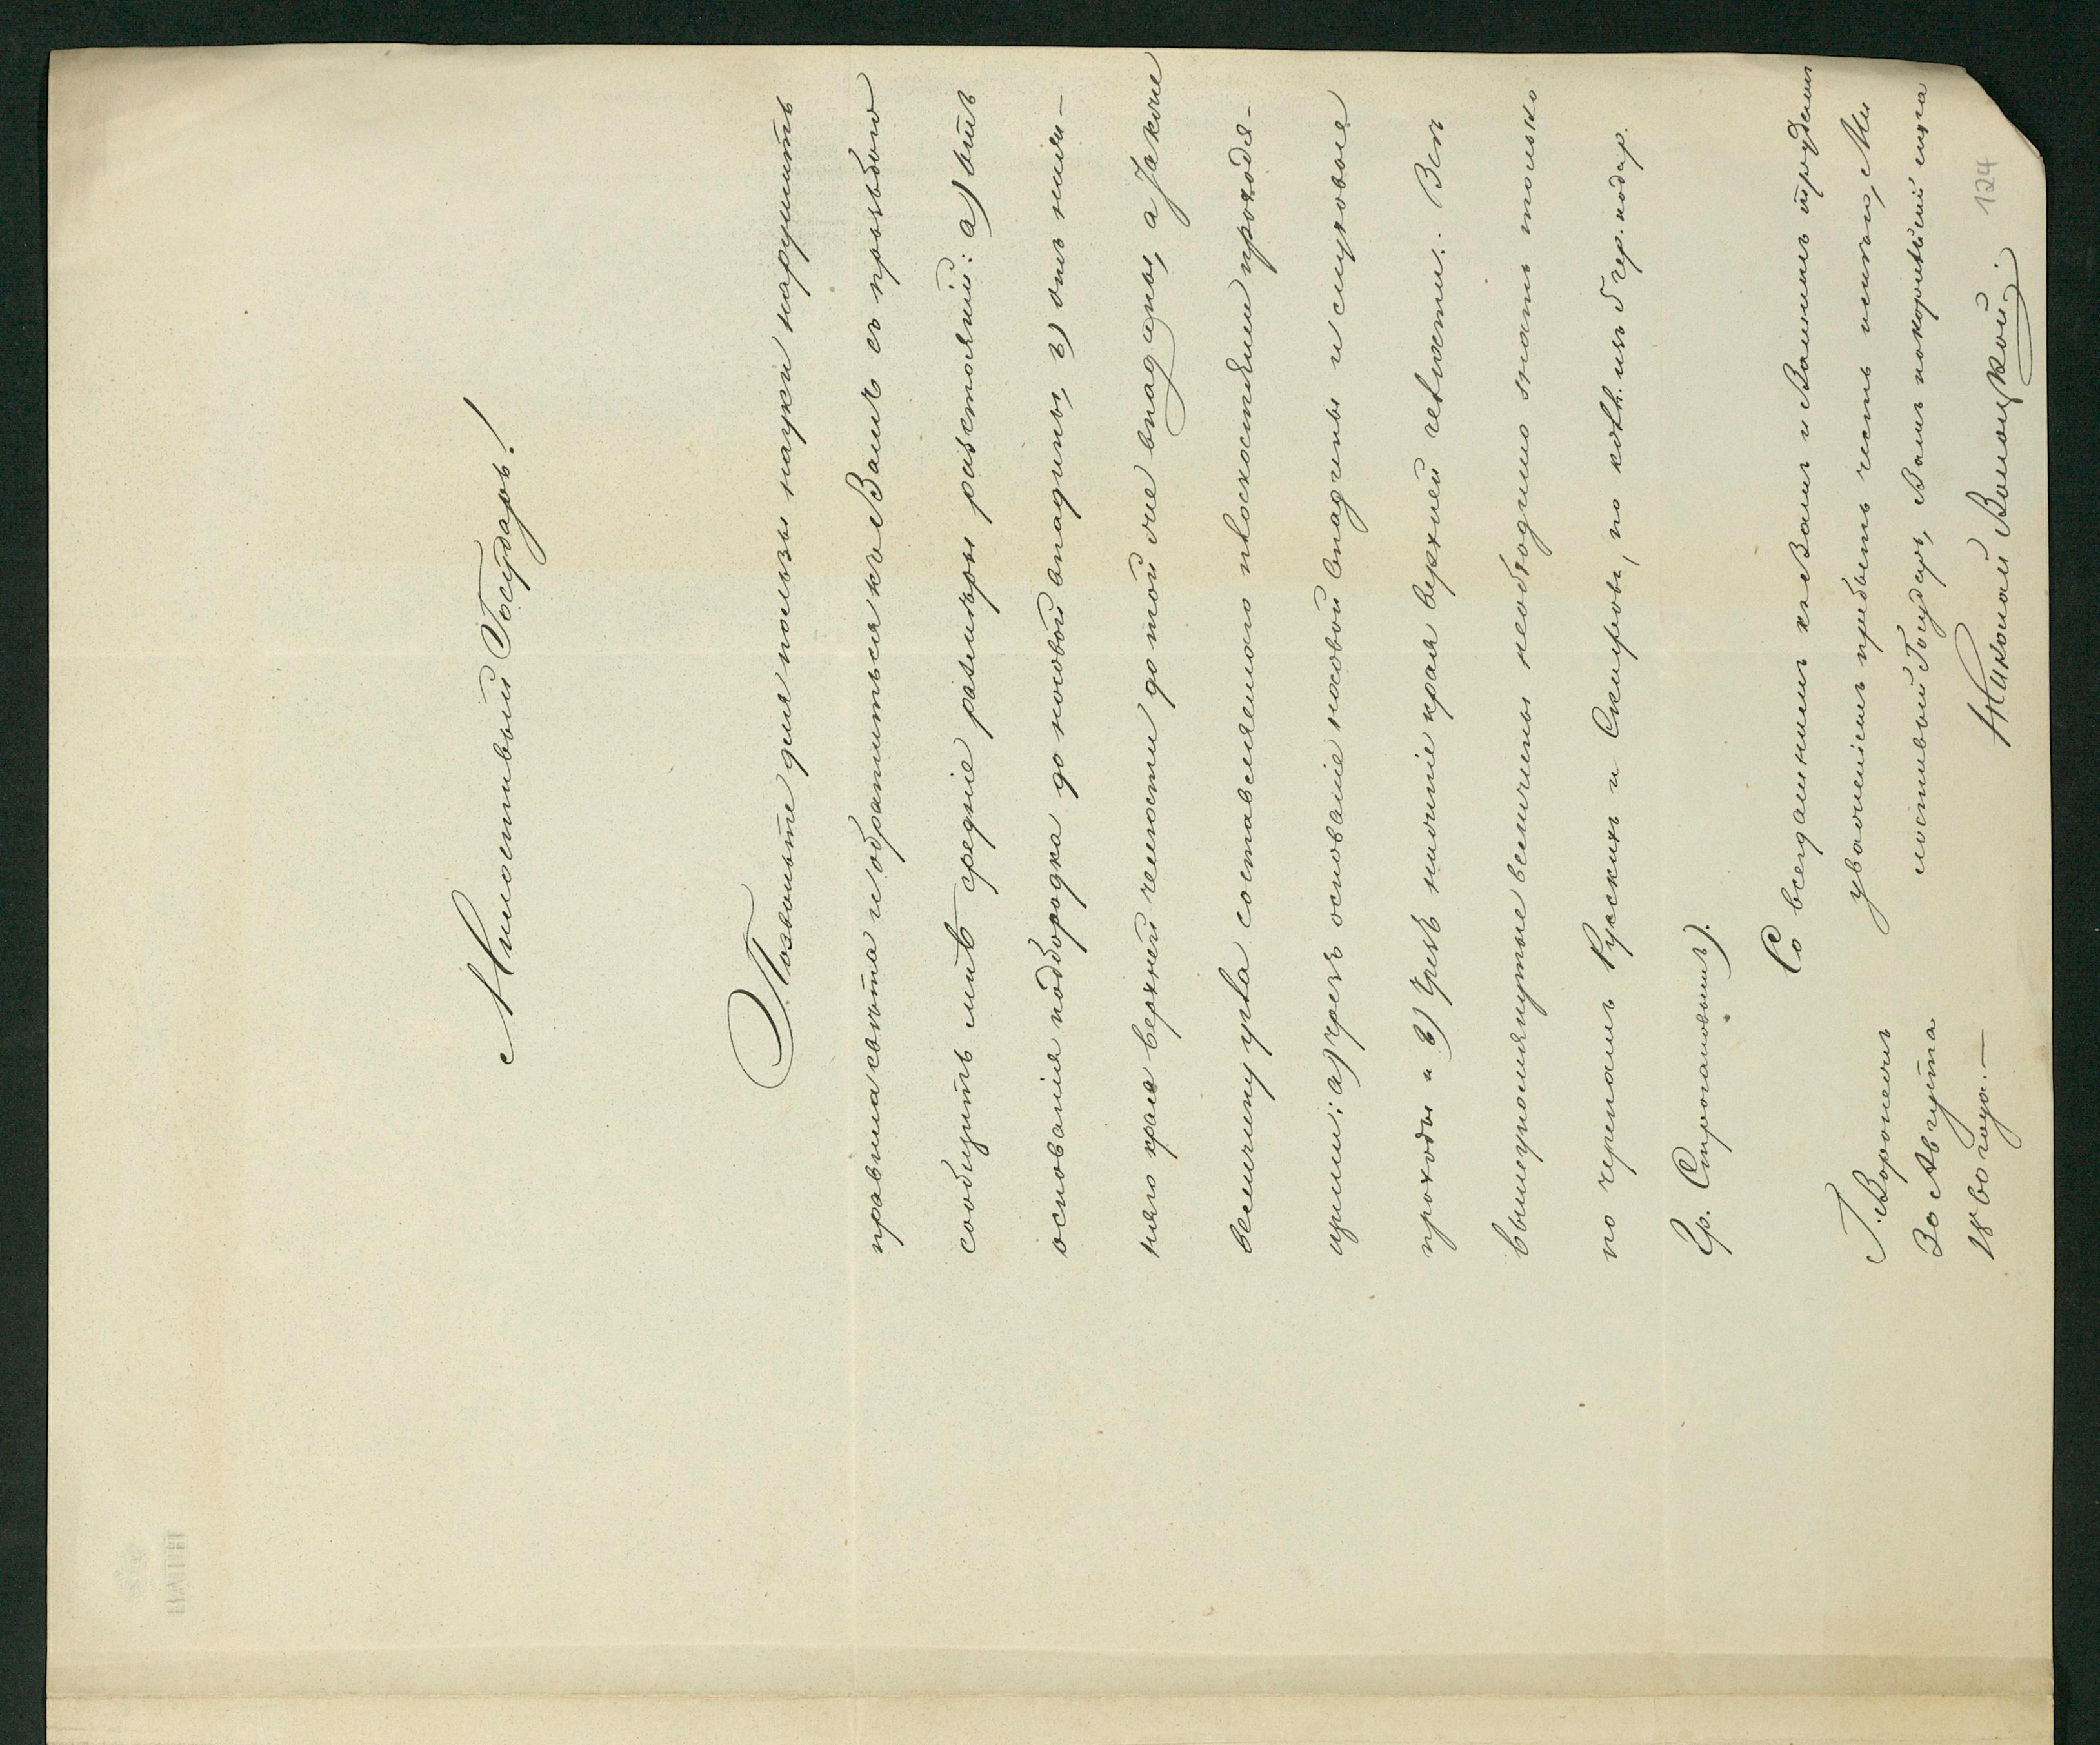 Милостивый Государь!
Позвольте для пользы науки нарушить
правила свѣта и обратиться къ Вамъ съ прозьбою
сообщить мнѣ средніе размѣры разстояній: а) отъ
основанія подбородка до носовой впадины, в) отъ ниж-
няго края верхней челюсти до той же впадины, а также
величину угла составляемаго плоскостями проходя-
щими: а) чрезъ основаніе носовой впадины и слуховые
проходы и в) чрезъ нижніе края верхней челюсти. Всѣ
вышеупомянутыя величины необходимо знать только
по черепамъ Русскихъ и Скифовъ, по изъ
Гр. Строгановымъ).
Со всегдашнимъ къ Вамъ и Вашимъ трудамъ
уваженіемъ пребыть честь имѣю, Ми
лостивый Государь, Вашъ покорнѣйшій слуга
Николай Волоцкой.
Г. Воронежъ
30 Августа
1860 года. —
124